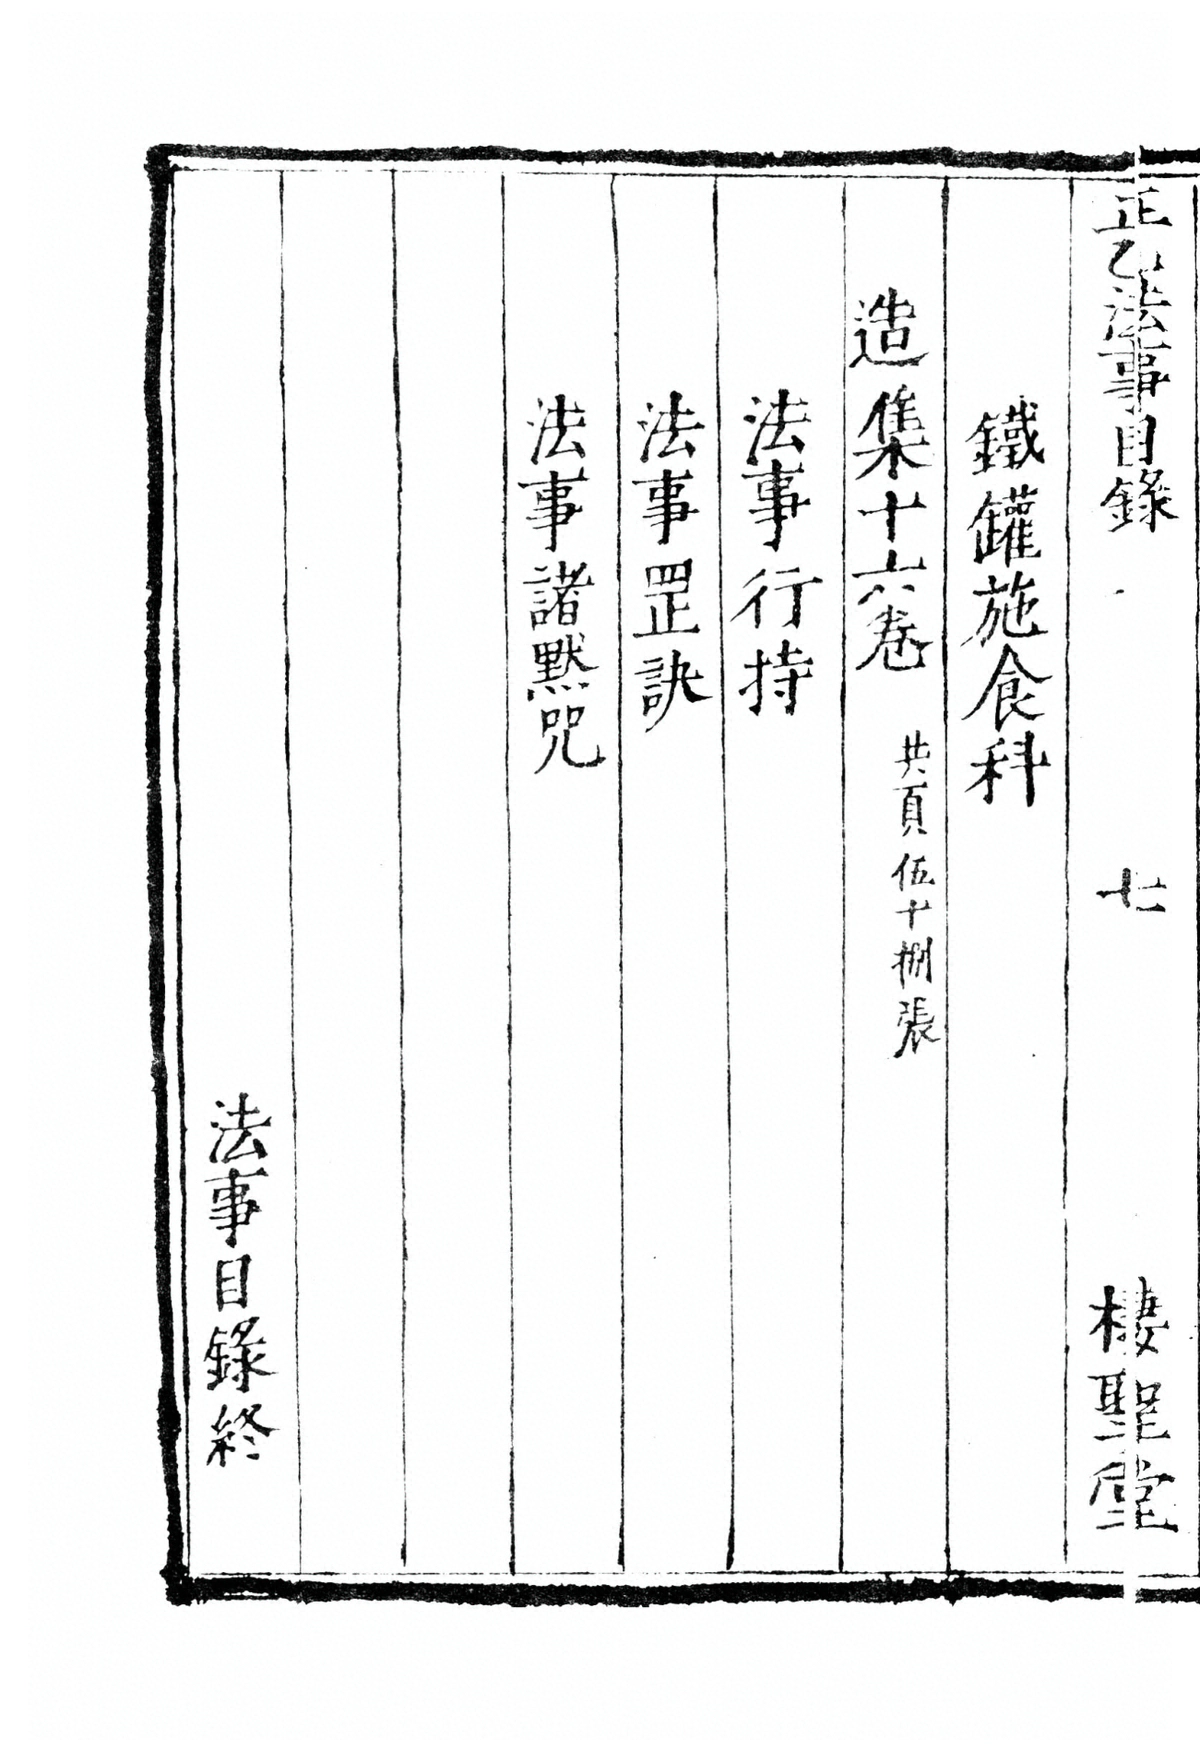 正乙法事目錄 七 棲聖堂
鐵罐施食科
造集十六卷 共頁伍十捌張
法事行持
法事罡訣
法事諸默咒
法事目錄終